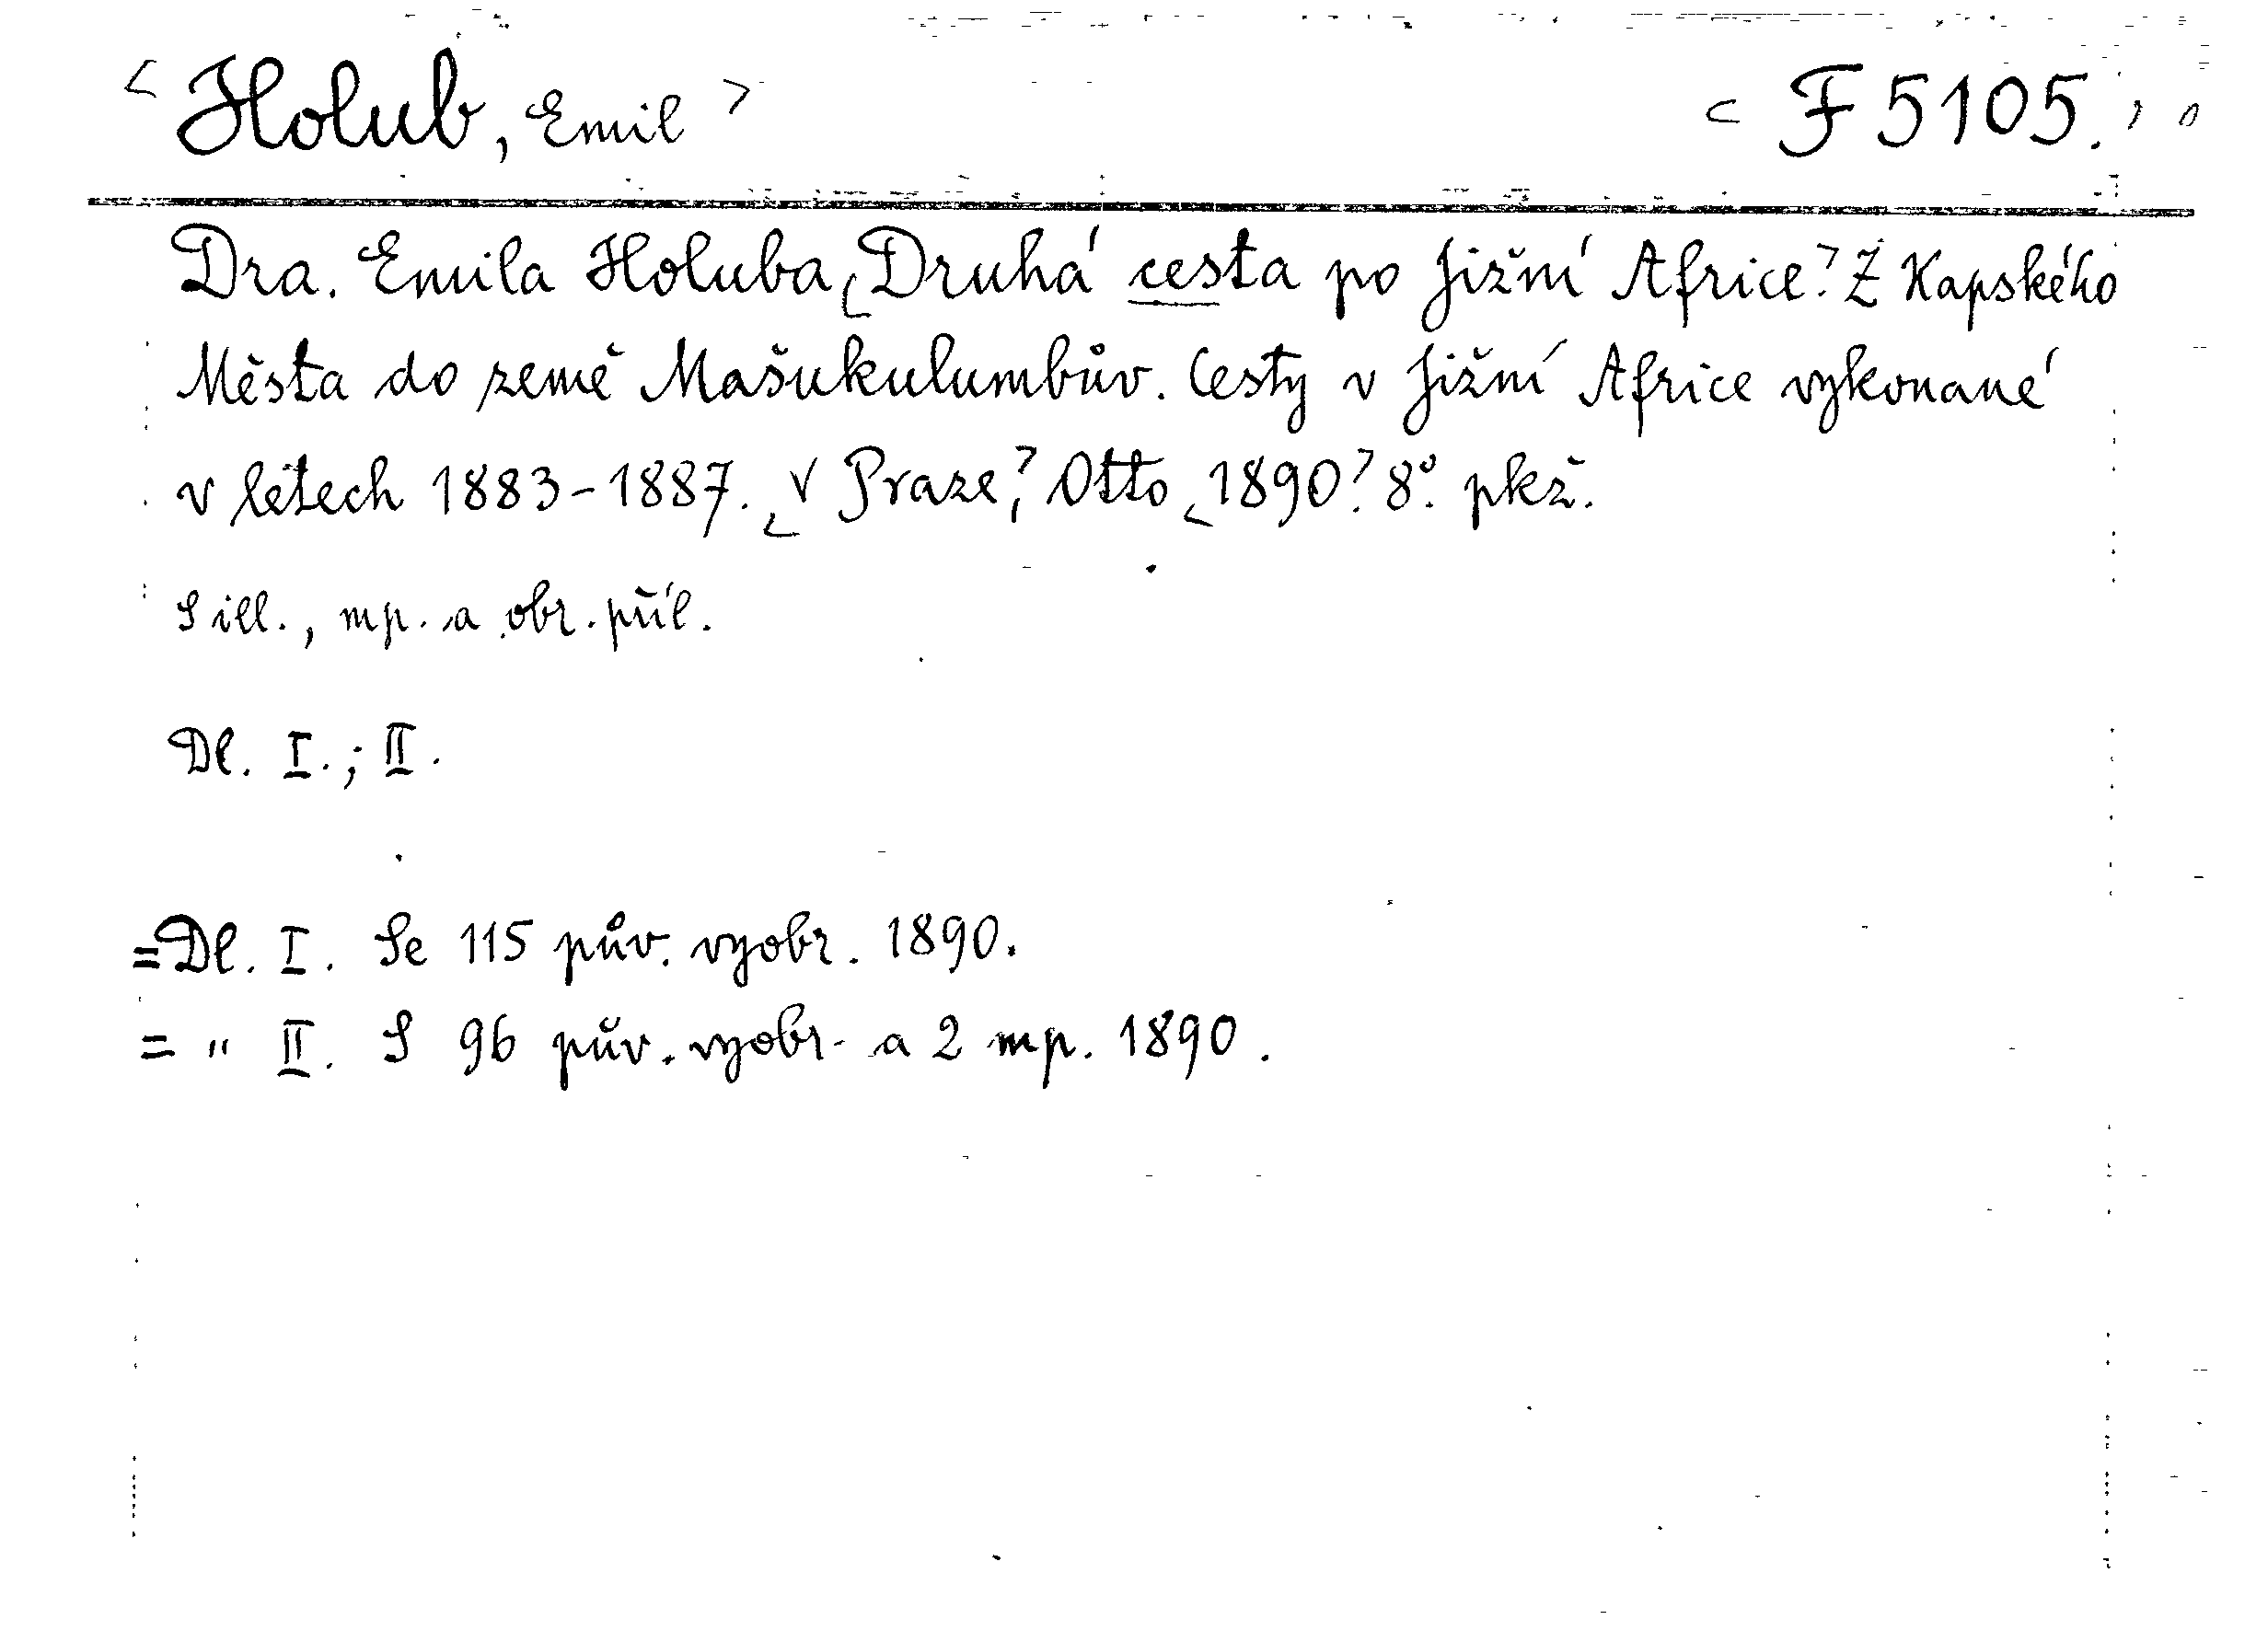 < Holub, Emil > < F 5105. >
Dra. Emila Holuba, <Druhá cesta po Jižní Africe.> Z Kapského
Města do země Mašukulumbův. Cesty v Jižní Africe vykonané
v létech 1883-1887. <V Praze,> Otto <1890>. 8°. pkž.
S ill., mp. a obr. příl.
Dl. I.; II.
= Dl. I. Se 115 pův. vyobr. 1890.
= " II. S 96 pův. vyobr. a 2 mp. 1890.